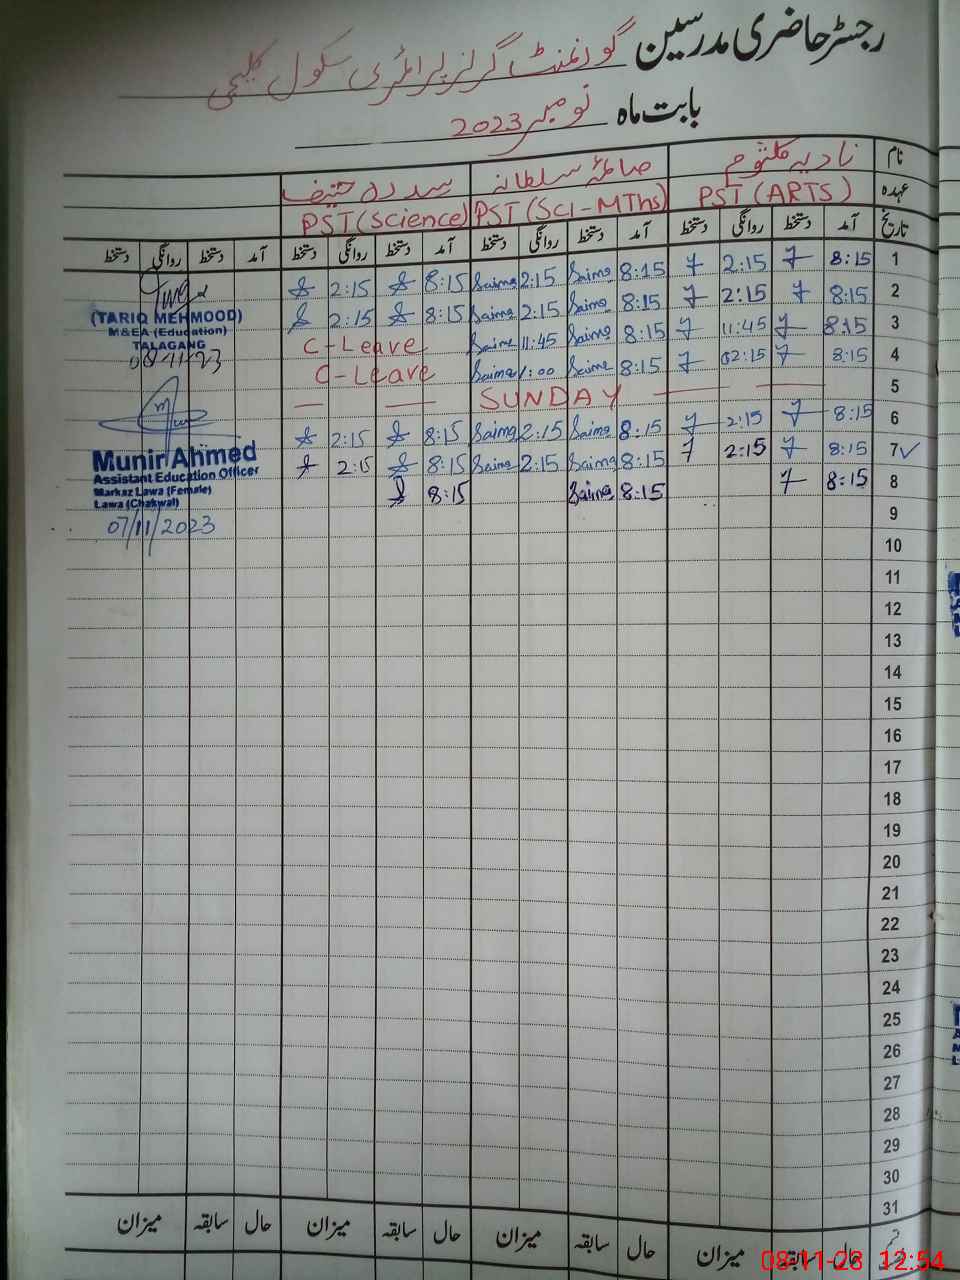 رجسٹر حاضری مدرسین گورنمنٹ گرلز پرائمری سکول
بابت ماہ نومبر 2023
نام نادیہ کلثوم صائمہ سلطانہ سدرہ حنیف
عہدہ PST (ARTS) PST (Sci-MThs) PST (Science)
تاریخ آمد دستخط روانگی دستخط آمد دستخط روانگی دستخط آمد دستخط روانگی دستخط آمد دستخط روانگی دستخط
1 8:15 2:15 8:15 Saima 2:15 Saima 8:15 2:15
2 8:15 2:15 8:15 Saima 2:15 Saima 8:15 2:15
3 8:15 11:45 8:15 Saima 11:45 Saima C-Leave
4 8:15 02:15 8:15 Saima 1:00 Saima C-Leave
5 SUNDAY
6 8:15 2:15 8:15 Saima 2:15 Saima 8:15 2:15
7 8:15 2:15 8:15 Saima 2:15 Saima 8:15 2:15
8 8:15 8:15 Saima 8:15
9
10
11
12
13
14
15
16
17
18
19
20
21
22
23
24
25
26
27
28
29
30
31
(TARIQ MEHMOOD)
M&EA (Education)
TALAGANG
08-11-23
Munir Ahmed
Assistant Education Officer
Markaz Lawa (Female)
Lawa (Chakwal)
07/11/2023
حال سابقہ میزان حال سابقہ میزان حال سابقہ میزان حال سابقہ میزان
08-11-23 12:54